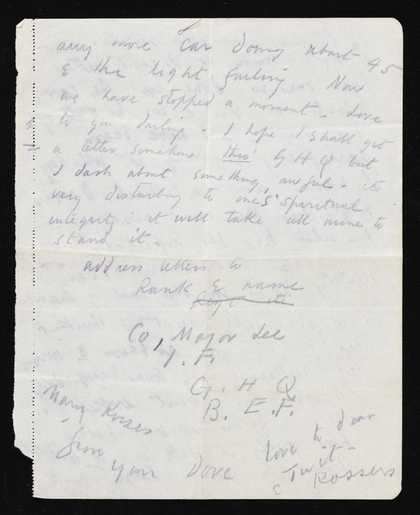 any more Car doing about 45
& the light failing Now
we have stopped a moment - Love
to you darling - I hope I shall get
a letter somehow thro G H Q but
I dash about something awful - its
very disturbing to one's 'spiritual
integrity' it will take all mine to
stand it.
address letters to
Rank & name
Co, Major Lee
I. F.
G. H Q
B. E. F.
Many Kisses
from
your Dove
love to dear
Twit -
Rossers